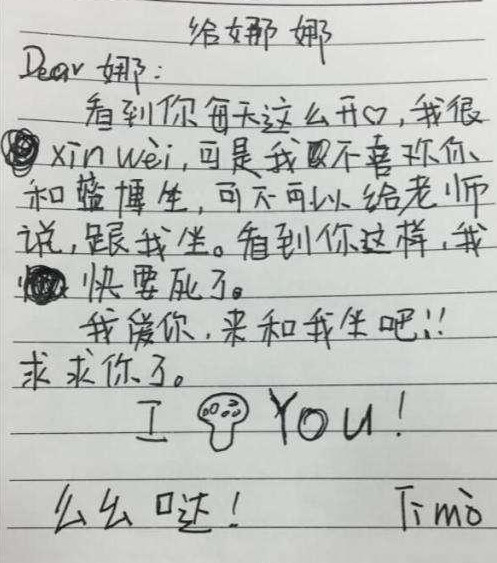 给娜娜
Dear 娜:
看到你每天这么开♡,我很
xīn wèi,可是我不喜欢你、
和蓝博坐,可不可以给老师
说,跟我坐。看到你这样,我
快要死了。
我爱你,来和我坐吧!!
求求你了。
I You!
么么哒!
Timò